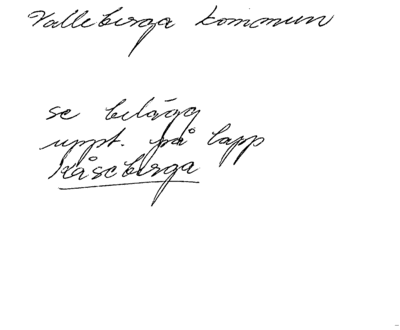 Valleberga kommun
se belägg
uppt. på lapp
Kåseberga